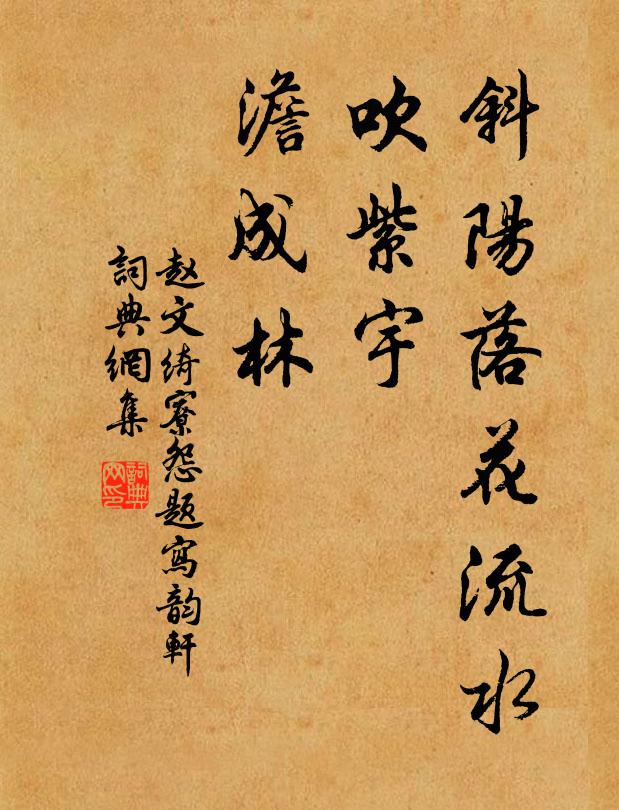 斜陽落花流水
吹紫宇
澹成林
赵文绮寮怨题寫韵軒
詞典網集
詞典网印